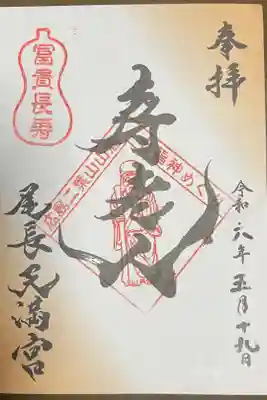 奉拝
令和六年五月十九日
寿老人
広島二葉山山
福神めぐ
富貴長寿
尾長天満宮